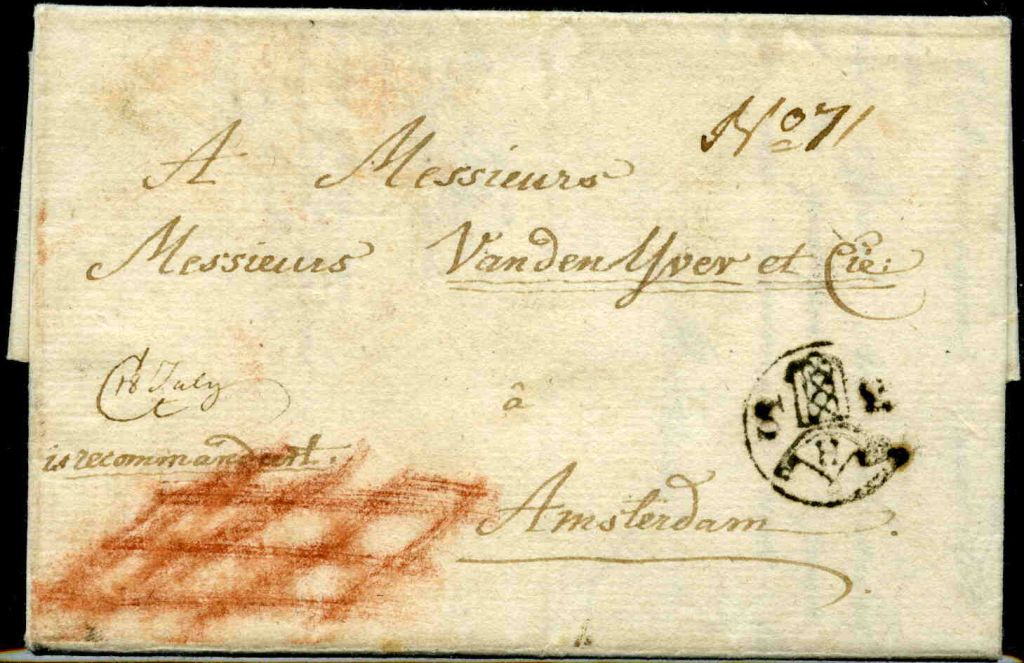 No 71
A Messieurs
Messieurs Vanden Yver et Cie:
18 July
â
is recommandeert.
Amsterdam